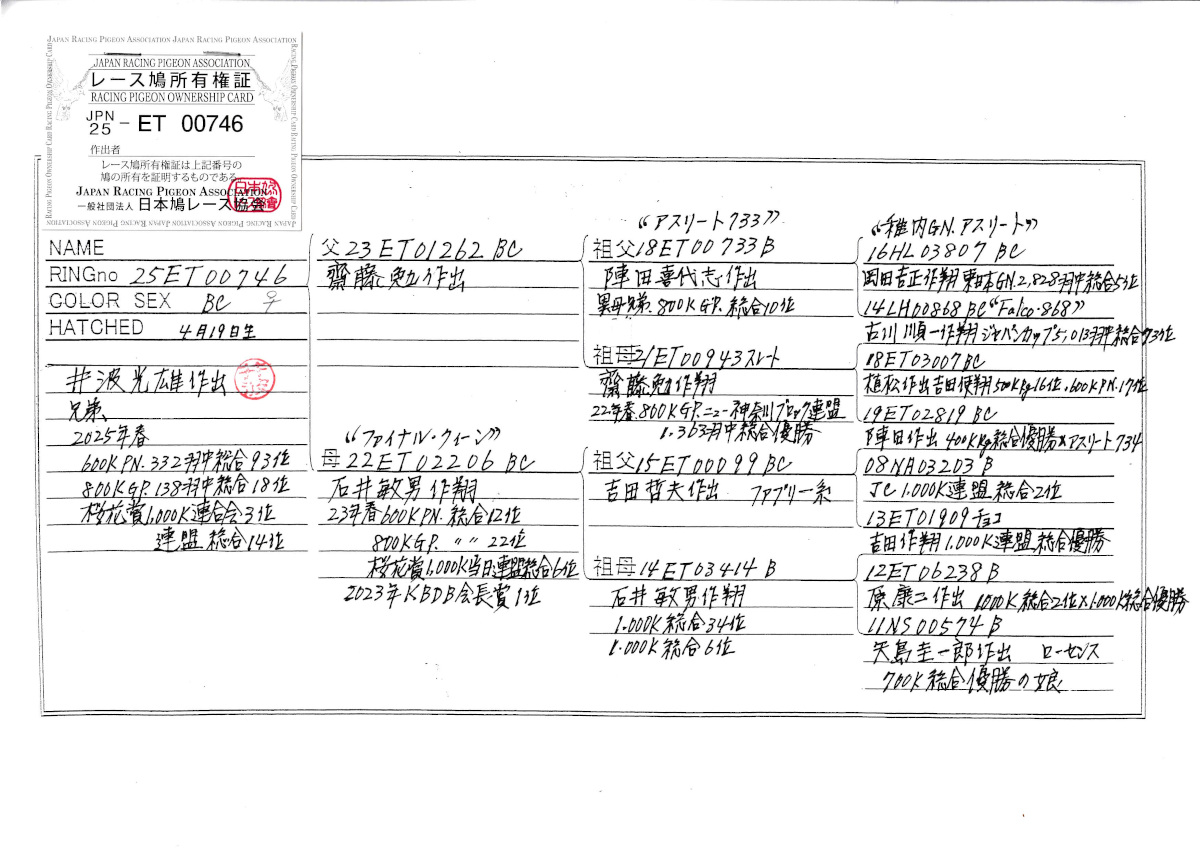 JAPAN RACING PIGEON ASSOCIATION JAPAN RACING PIGEON ASSOCIATION
JAPAN RACING PIGEON ASSOCIATION
レース鳩所有権証
RACING PIGEON OWNERSHIP CARD
JPN
25 - ET 00746
作出者
レース鳩所有権証は上記番号の
鳩の所有を証明するものである。
JAPAN RACING PIGEON ASSOCIATION
一般社団法人 日本鳩レース協会
NAME
RINGno 25ET00746
COLOR SEX BC ♀
HATCHED 4月19日生
井波光雄作出
兄弟、
2025年春
600K PN. 332羽中総合93位
800K GP. 138羽中総合18位
桜花賞1,000K連合会3位
連盟 総合14位
父23ET01262 BC
齋藤 勉 作出
“ファイナル・クィーン”
母22ET02206 BC
石井敏男作翔
23年春600K PN. 総合12位
800K GP. 〃 〃 22位
桜花賞1,000K当日連盟総合6位
2023年KBDB会長賞1位
“アスリート733”
祖父18ET00733 B
陣田喜代志作出
異母兄弟.800K GP. 総合10位
祖母21ET00943スレート
齋藤勉作翔
22年春.800K GP.ニュー神奈川ブロック連盟
1.363羽中総合優勝
祖父15ET00099 BC
吉田哲夫作出 ファブリー系
祖母14ET03414 B
石井敏男作翔
1.000K総合34位
1.000K総合6位
“稚内GN.アスリート”
16HL03807 BC
岡田吉正作翔 東日本GN.2,828羽中総合5位
14LH00868 BC “Falco・868”
古川順一作翔ジャパンカップ5,013羽中総合73位
18ET03007 BC
植松作出吉田使翔500Kg16位.600K PN.17位
19ET02819 BC
陣田作出 400Kg総合優勝×アスリート734
08NA03203 B
JC 1.000K連盟 総合2位
13ET01909チョコ
吉田作翔1.000K連盟総合優勝
12ET06238 B
原 康二作出 1000K総合2位×1.000K総合優勝
11NS00574 B
矢島圭一郎作出 ローセンス
700K総合優勝の娘